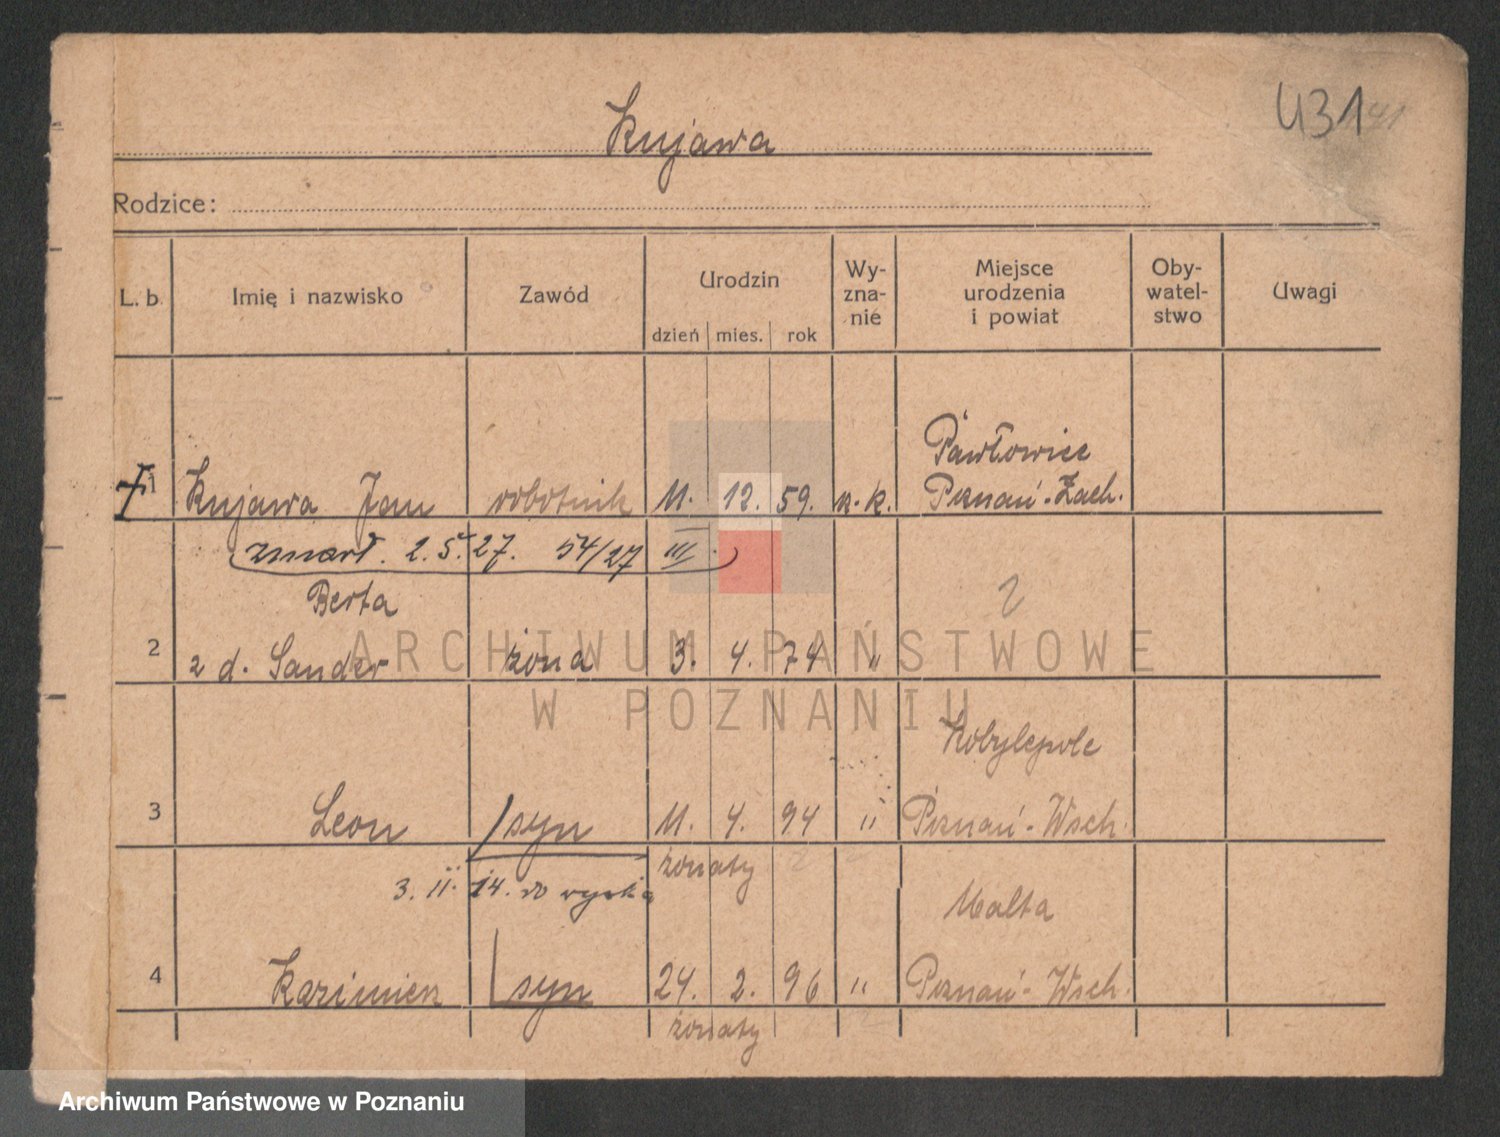 U31
Kujawa
Rodzice:
L. b. Imię i nazwisko Zawód Urodzin dzień mies. rok Wy-zna-nie Miejsce urodzenia i powiat Oby-watel-stwo Uwagi
Pawłowice
1 Kujawa Jan robotnik 11. 12. 59. r.k. Poznań-Zach.
zmarł. 2.5.27. 54/27 III
Berta
2 z d. Sander żona 3. 4. 74 "
Kobylepole
3 Leon syn 11. 4. 94 " Poznań-Wsch.
żonaty
3. 11. 14. do wojska
Malta
4 Kazimierz syn 24. 2. 96 " Poznań-Wsch.
żonaty
ARCHIWUM PAŃSTWOWE
W POZNANIU
Archiwum Państwowe w Poznaniu